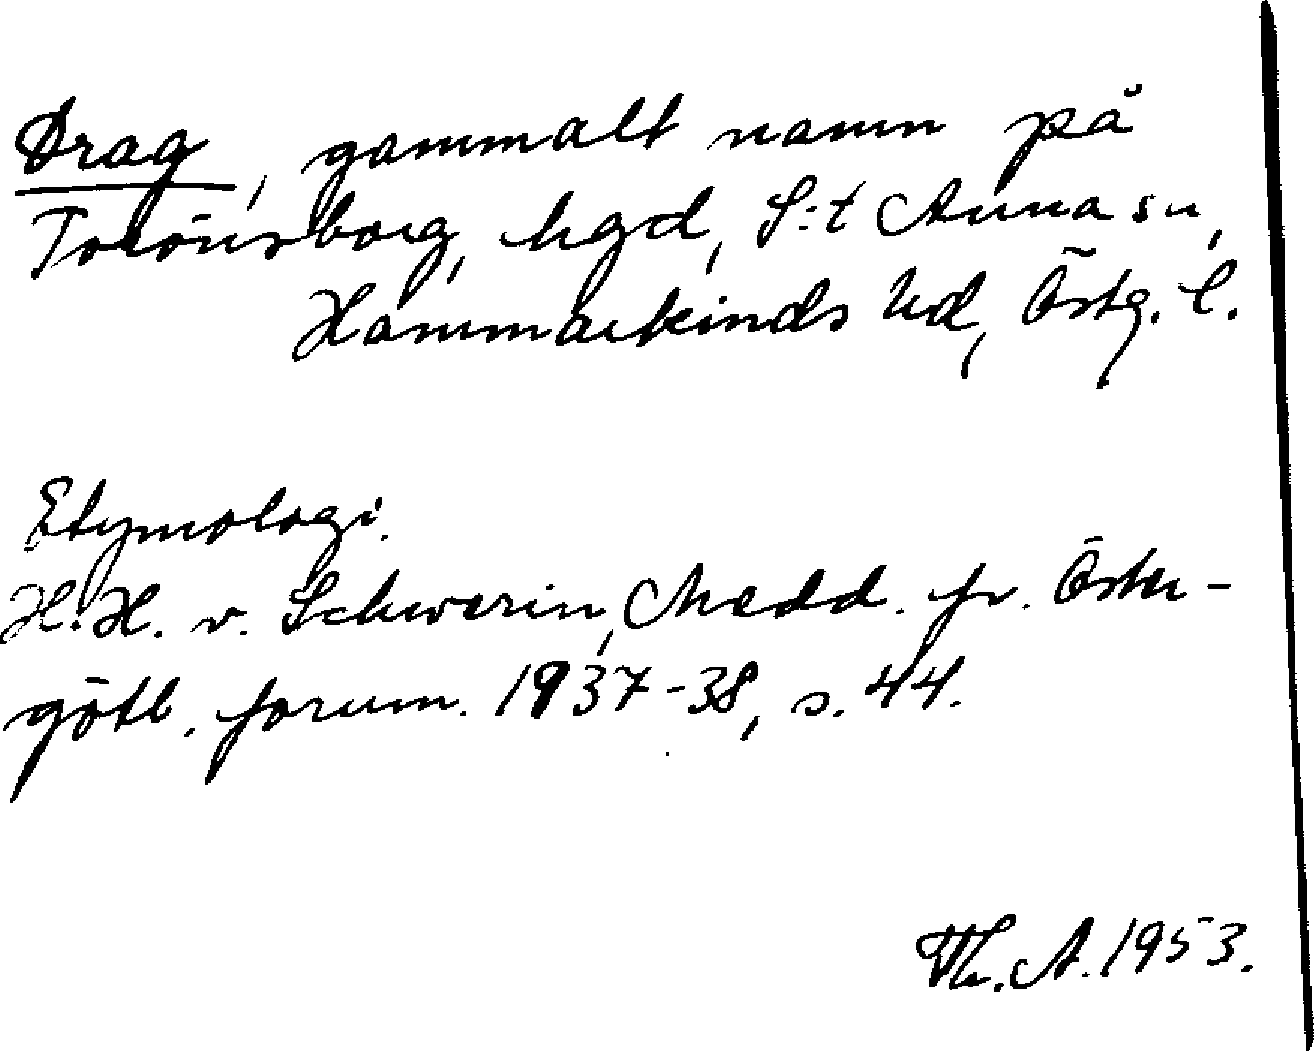 Drag, gammalt namn på
Torönsborg, hgd, S:t Anna sn,
Hammarkinds hd, Östg. l.
Etymologi.
H. H. v. Schwerin, Medd. fr. Öster-
götl. fornm. 1937-38, s. 44.
Th. A. 1953.